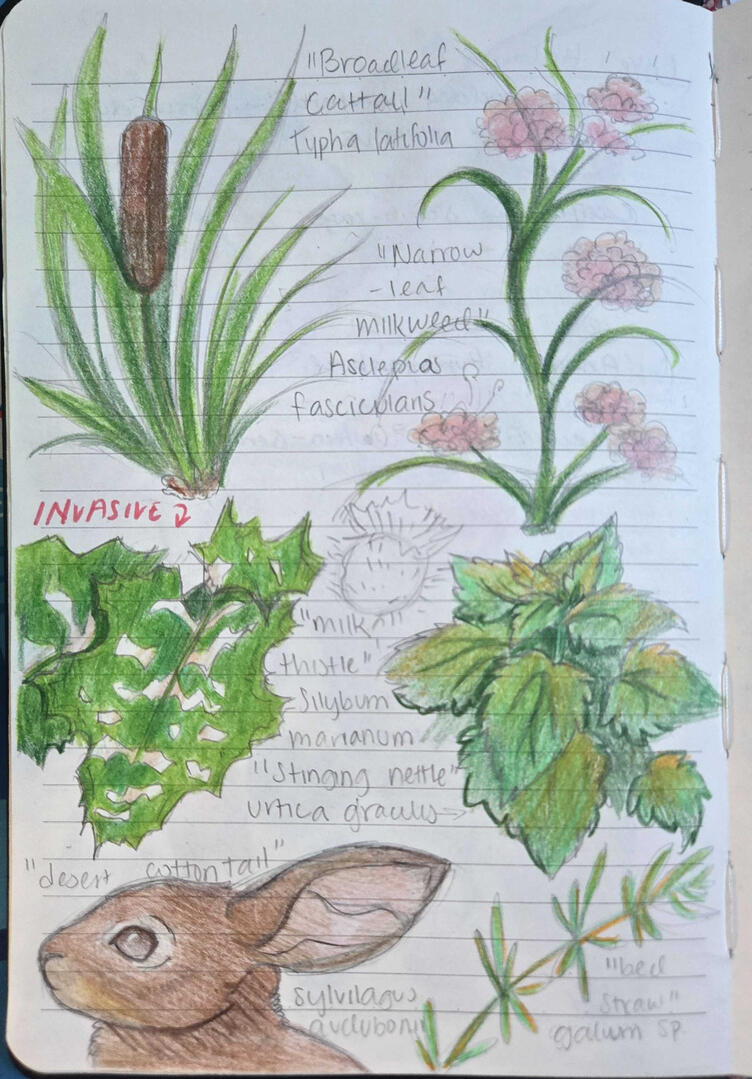 "Broadleaf
Cattail"
Typha latifolia
"Narrow
-leaf
milkweed"
Asclepias
fascicplans
INVASIVE
"milk
thistle"
Silybum
marianum
"Stinging nettle"
Urtica gracilis →
"desert cottontail"
Sylvilagus
audubonii
"bed
straw"
galium sp.